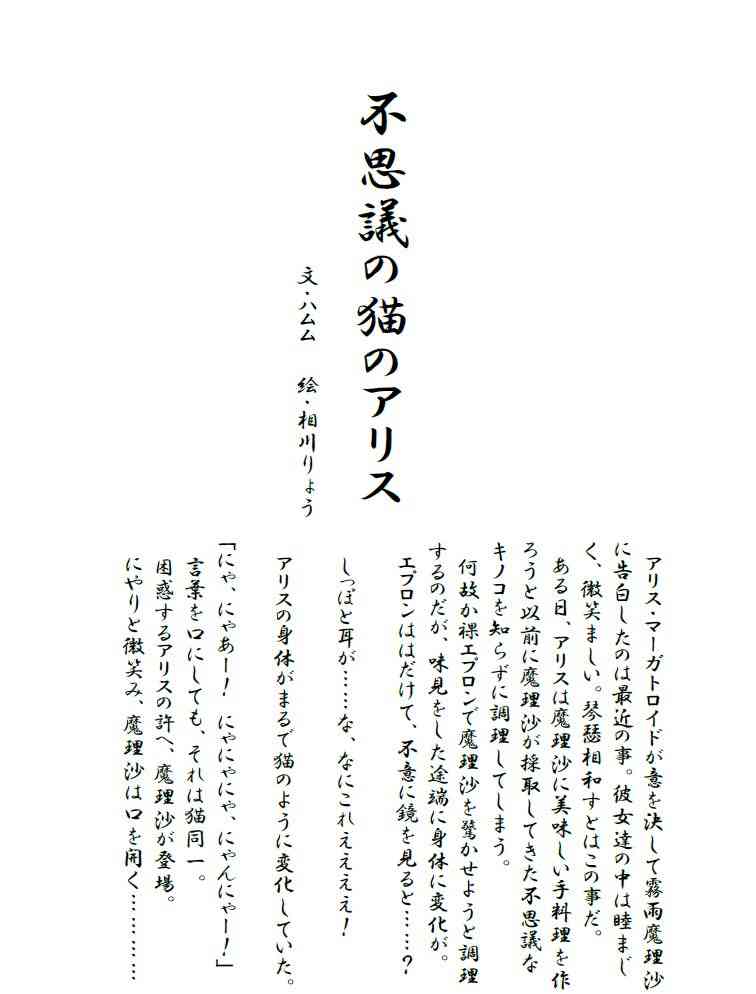 不思議の猫のアリス
文・ハムム　絵・相川りょう
アリス・マーガトロイドが意を決して霧雨魔理沙
に告白したのは最近の事。彼女達の中は睦まじ
く、微笑ましい。琴瑟相和すとはこの事だ。
ある日、アリスは魔理沙に美味しい手料理を作
ろうと以前に魔理沙が採取してきた不思議な
キノコを知らずに調理してしまう。
何故か裸エプロンで魔理沙を驚かせようと調理
するのだが、味見をした途端に身体に変化が。
エプロンははだけて、不意に鏡を見ると……？
しっぽと耳が……な、なにこれぇぇぇぇ！
アリスの身体がまるで猫のように変化していた。
「にゃ、にゃあー！　にゃにゃにゃ、にゃんにゃー！」
言葉を口にしても、それは猫同一。
困惑するアリスの許へ、魔理沙が登場。
にやりと微笑み、魔理沙は口を開く…………